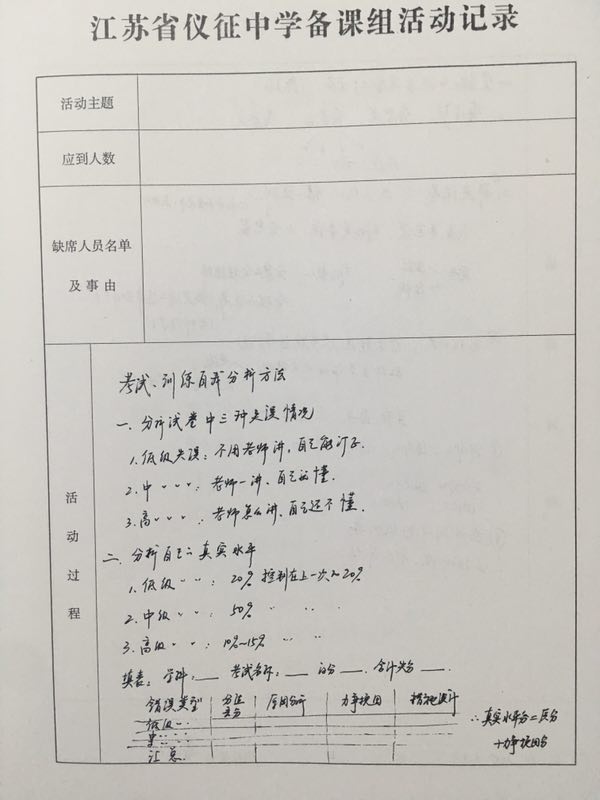 江苏省仪征中学备课组活动记录
活动主题
应到人数
缺席人员名单
及事由
活动过程
考试、训练自我分析方法
一、分析试卷中三种失误情况
1.低级失误：不用老师讲，自己能订正.
2.中〃〃〃：老师一讲、自己的懂.
3.高〃〃〃：老师怎么讲、自己还不懂.
二、分析自己真实水平
1.低级〃〃：20% 控制在上一次20%
2.中级〃〃：50% 〃 〃
3.高级〃〃：10%~15% 〃 〃
填表：学科：__ 考试名称：__ 得分__.合计失分__.
错误类型 分值 原因分析 力争挽回 措施设计
低级〃
中〃
汇总
∴真实水平分=区分
+力争挽回分